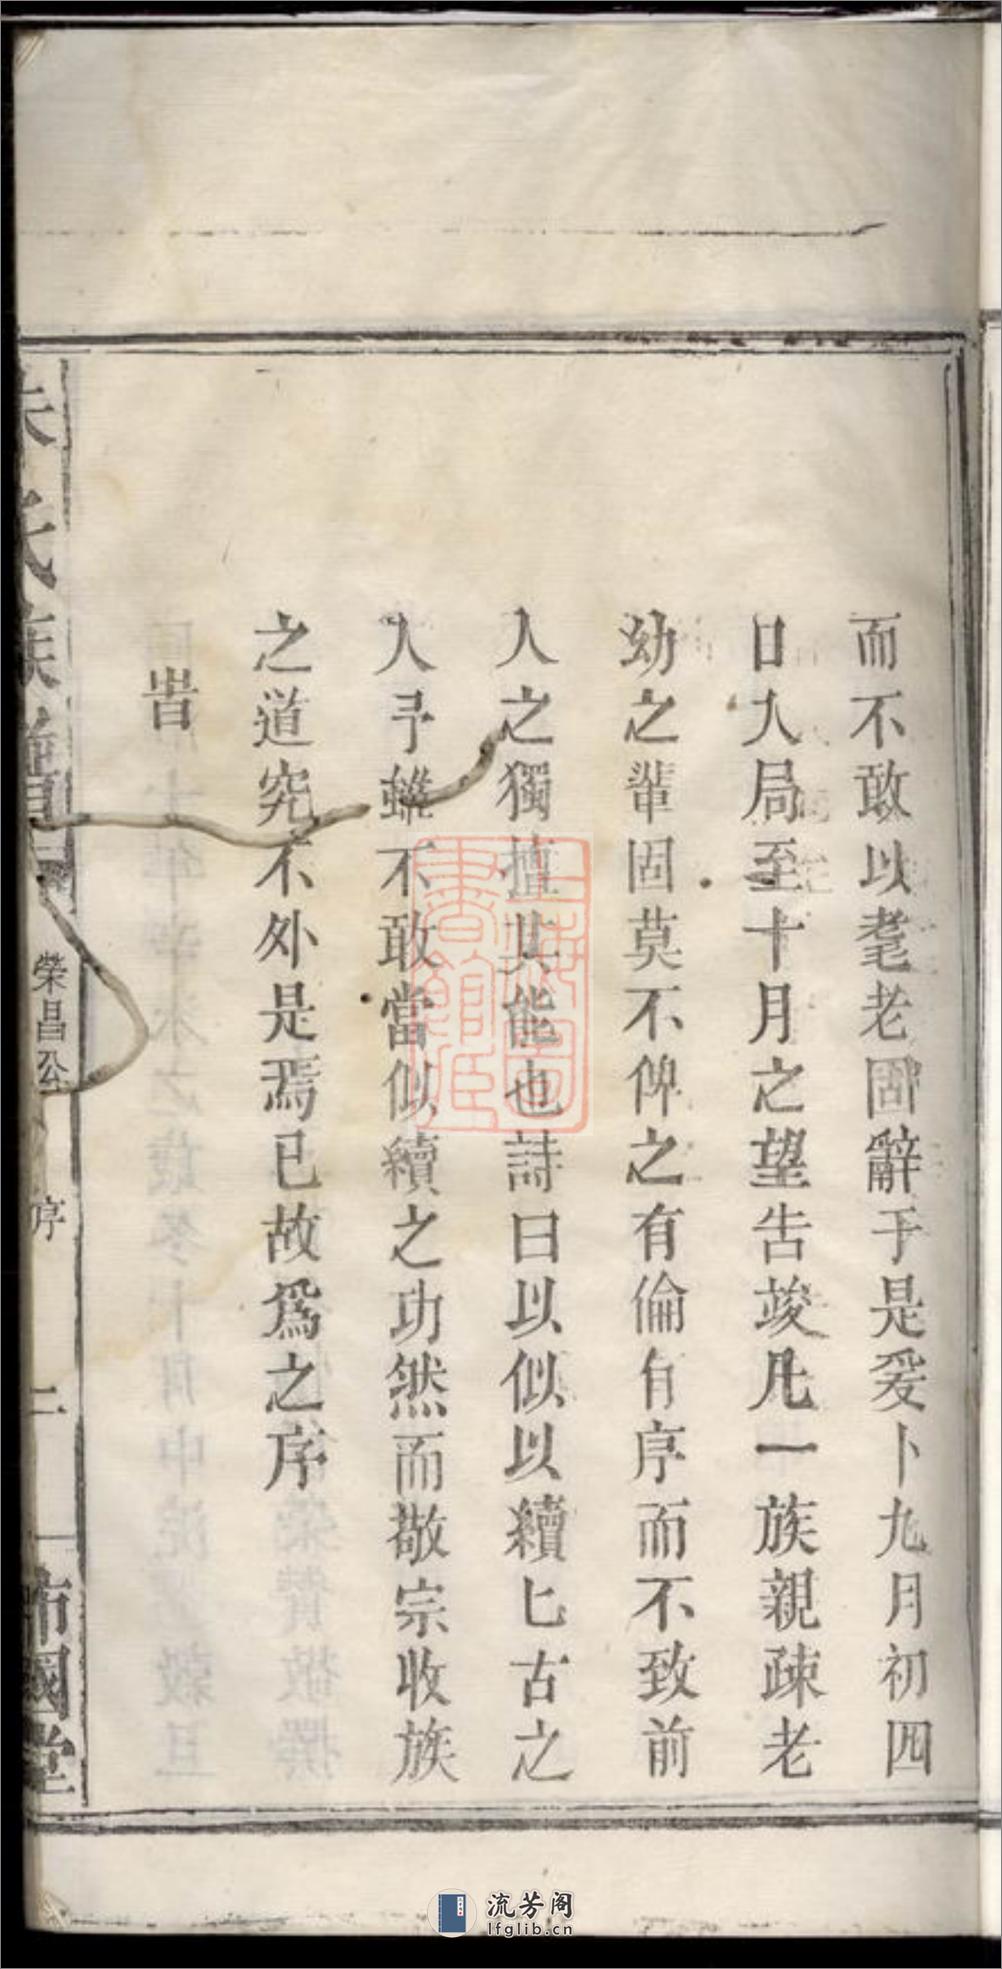 而不敢以耄老固辭于是爰卜九月初四
日大局至十月之望告竣凡一族親疎老
幼之輩固莫不俾之有倫有序而不致前
人之獨擅其能也詩曰以似以續匕古之
人予雖不敢當似續之功然而敬宗收族
之道究不外是焉已故爲之序
旹
朱氏族譜
榮昌公
序
二
佈國堂
上海圖書館藏
流芳阁
lfglib.cn